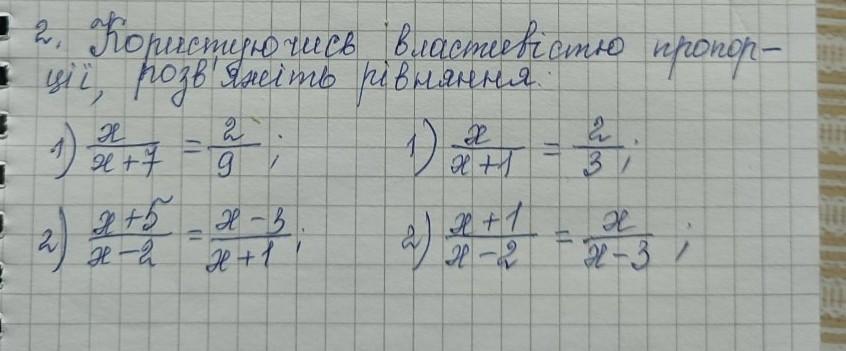 2. Користуючись властивістю пропор-
ції, розв'яжіть рівняння:
1) x/(x+7) = 2/9; 1) x/(x+1) = 2/3;
2) (x+5)/(x-2) = (x-3)/(x+1); 2) (x+1)/(x-2) = x/(x-3);